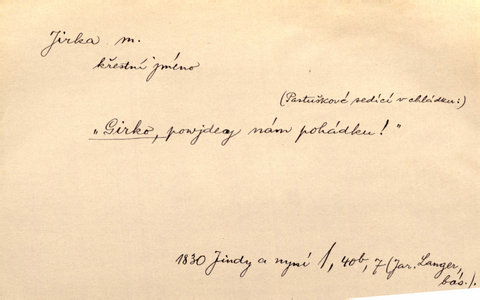 Jirka m.
křestní jméno
(Pastuškové sedící v chládku:)
„Girko, powjdey nám pohádku!"
1830 Jindy a nyní /, 40b, 7 (Jar. Langer,
bás.).